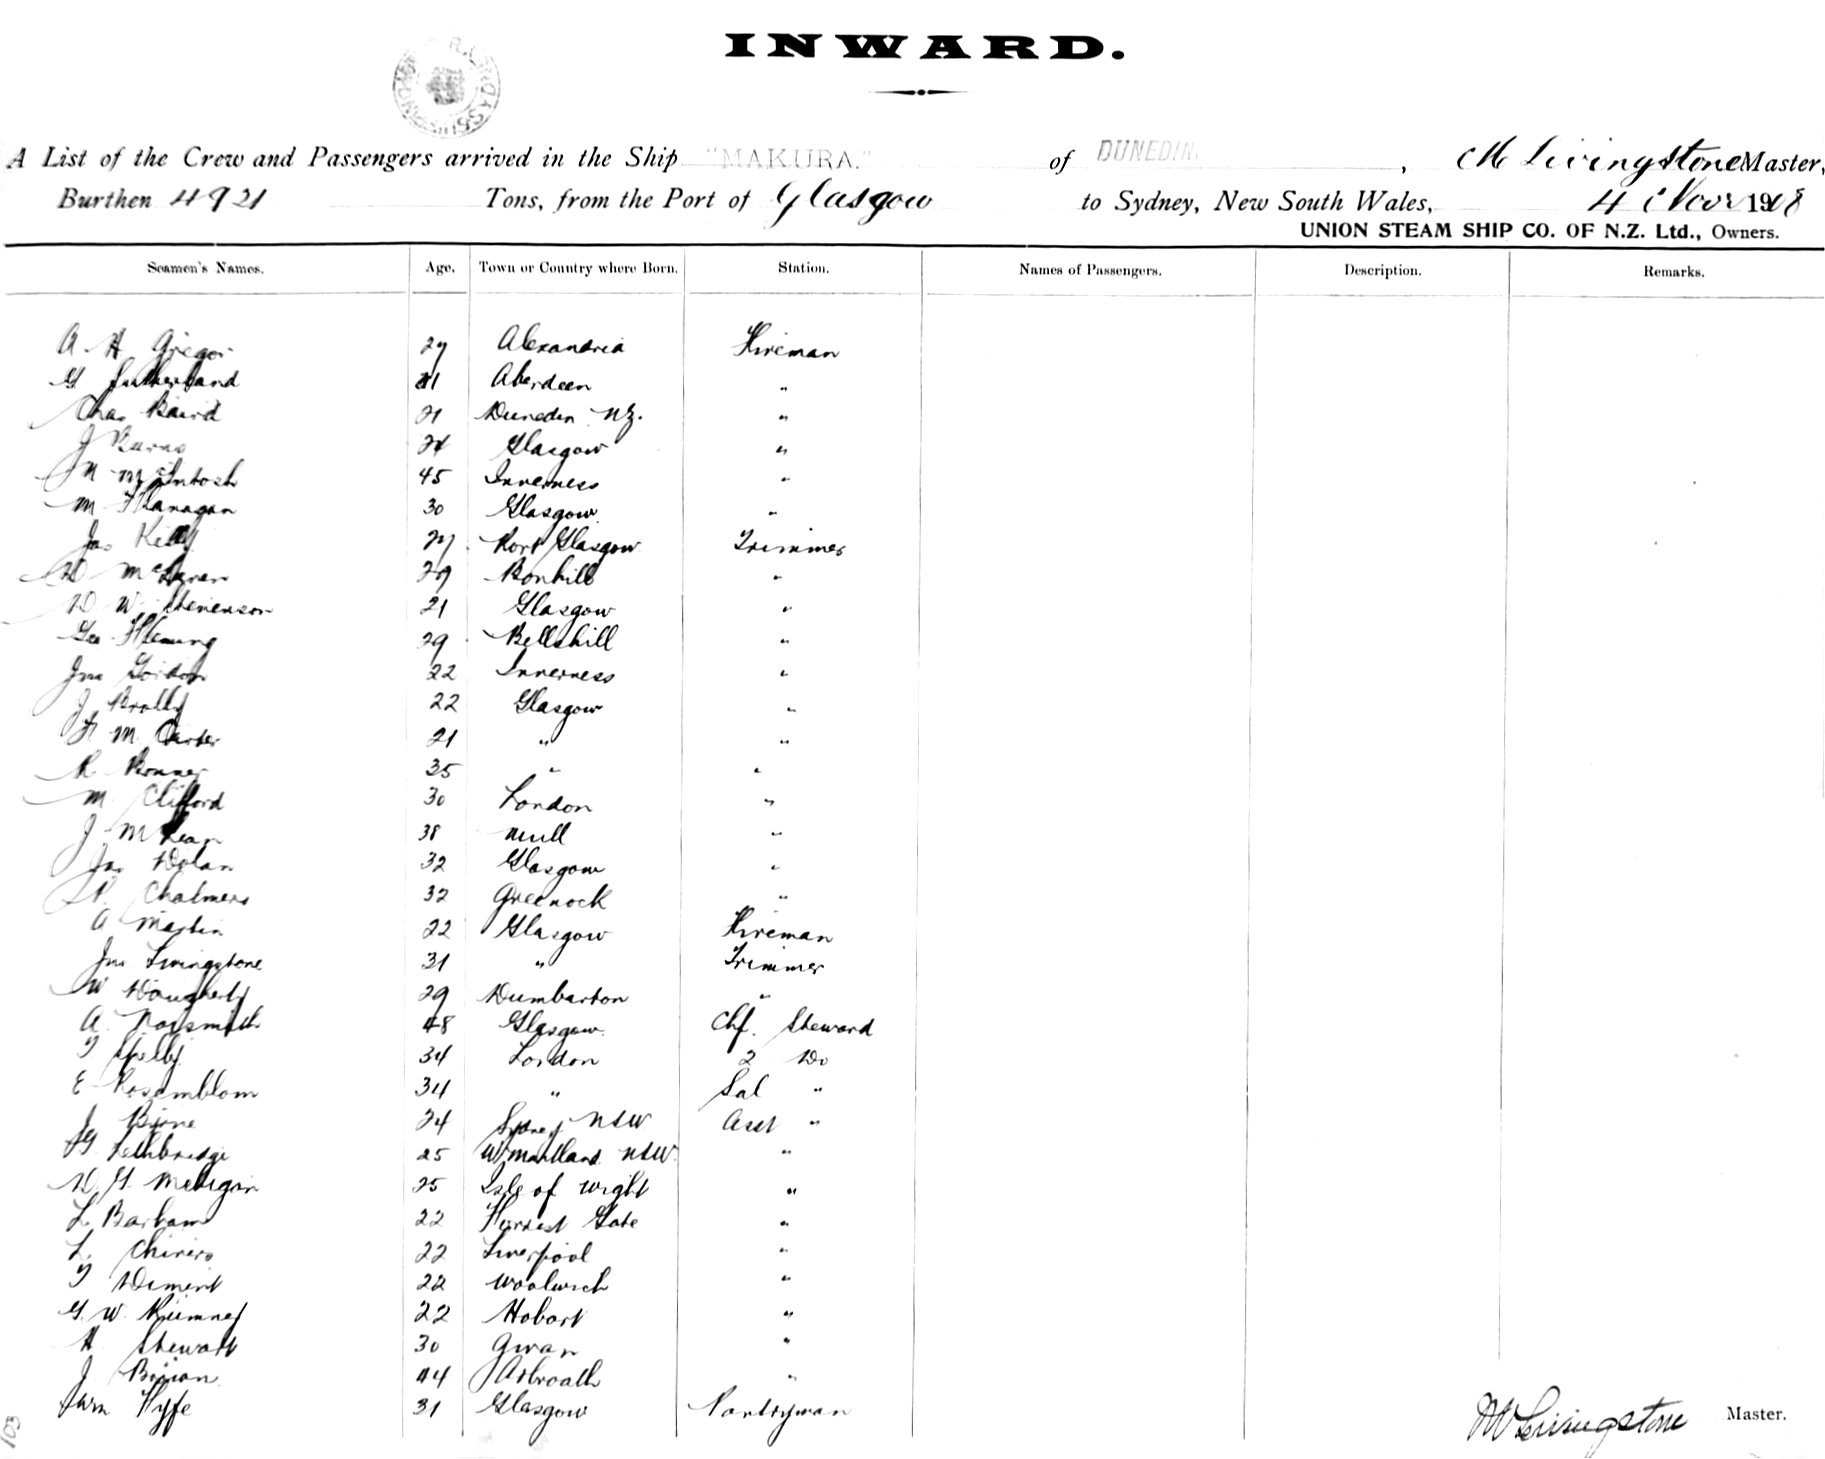 INWARD.
A List of the Crew and Passengers arrived in the Ship "MAKURA." of DUNEDIN. , M Livingstone Master,
Burthen 4921 Tons, from the Port of Glasgow to Sydney, New South Wales, 4 Novr 1908
UNION STEAM SHIP CO. OF N.Z. Ltd., Owners.
Seamen's Names. Age. Town or Country where Born. Station. Names of Passengers. Description. Remarks.
A. H Gregor 27 Alexandria Fireman
G Sutherland 21 Aberdeen "
Chas Baird 21 Dunedin NZ. "
J Burns 24 Glasgow "
M McIntosh 45 Inverness "
M Flanagan 30 Glasgow "
Jas Kelly 27 Port Glasgow Trimmer
D McLaren 29 Bonhill "
D W. Stevenson 21 Glasgow "
Geo Fleming 29 Bellshill "
Jno Gordon 22 Inverness "
J Brolly 22 Glasgow "
F M Carter 21 " "
R Bonner 35 " "
M Clifford 30 London "
J McLean 38 Mull "
Jas Dolan 32 Glasgow "
R. Chalmers 32 Greenock "
A Martin 22 Glasgow Fireman
Jno Livingstone 31 " Trimmer
W Dougherty 29 Dumbarton "
A. 48 Glasgow Chf. Steward
T Spelly 34 London 2 Do
E Rosemblom 34 " Sal "
J Byrne 24 Sydney NSW Asst "
G Lethbridge 25 W. Maitland NSW. "
D. G. Madigan 25 Isle of Wight "
L Barham 22 Forrest Gate "
L. 22 Liverpool "
T Diment 22 Woolwich "
G. W. Rumney 22 Hobart "
H Stewart 30 "
J 44 Arbroath "
Wm Fyfe 31 Glasgow Pantryman
M Livingstone Master.
103